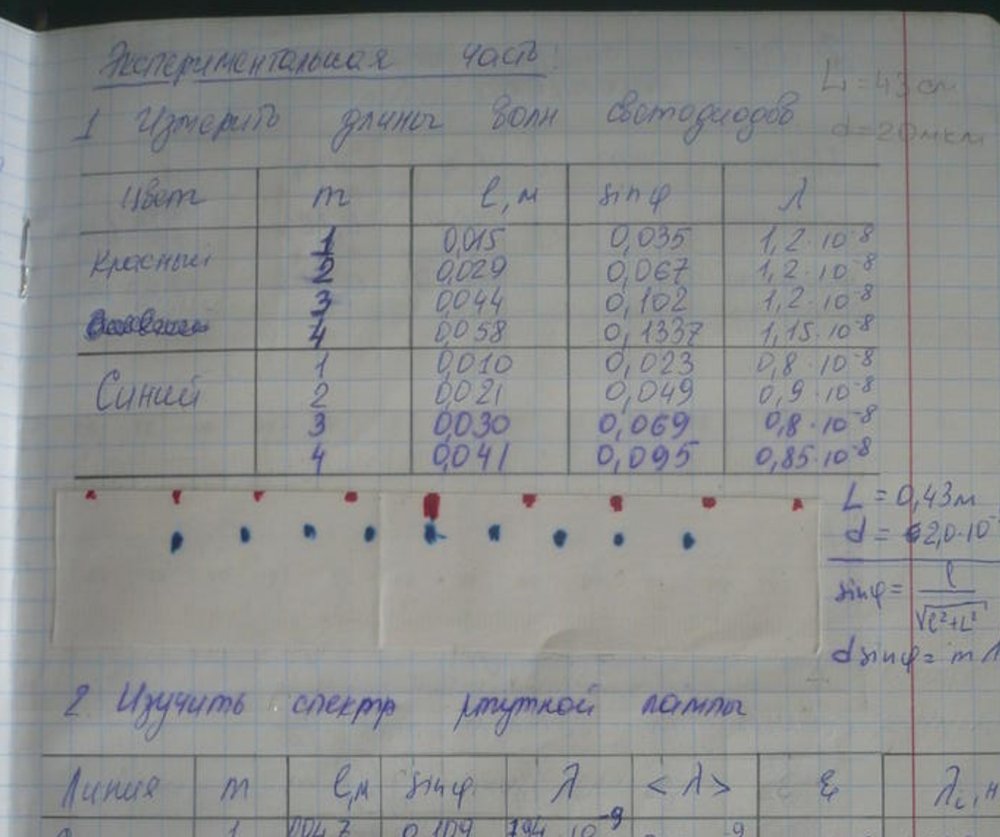 Экспериментальная часть:
L = 43 см
1 Измерить длины волн светодиодов
d = 20 мкм
Цвет m l, м sinφ λ
Красный 1 0,015 0,035 1,2·10⁻⁸
2 0,029 0,067 1,2·10⁻⁸
3 0,044 0,102 1,2·10⁻⁸
4 0,058 0,1337 1,15·10⁻⁸
Синий 1 0,010 0,023 0,8·10⁻⁸
2 0,021 0,049 0,9·10⁻⁸
3 0,030 0,069 0,8·10⁻⁸
4 0,041 0,095 0,85·10⁻⁸
L = 0,43м
d = 2,0·10⁻
sinφ = l/√(l²+L²)
d sinφ = mλ
2. Изучить спектр ртутной лампы
Линия m l,м sinφ λ <λ> ε λ
1 0,109